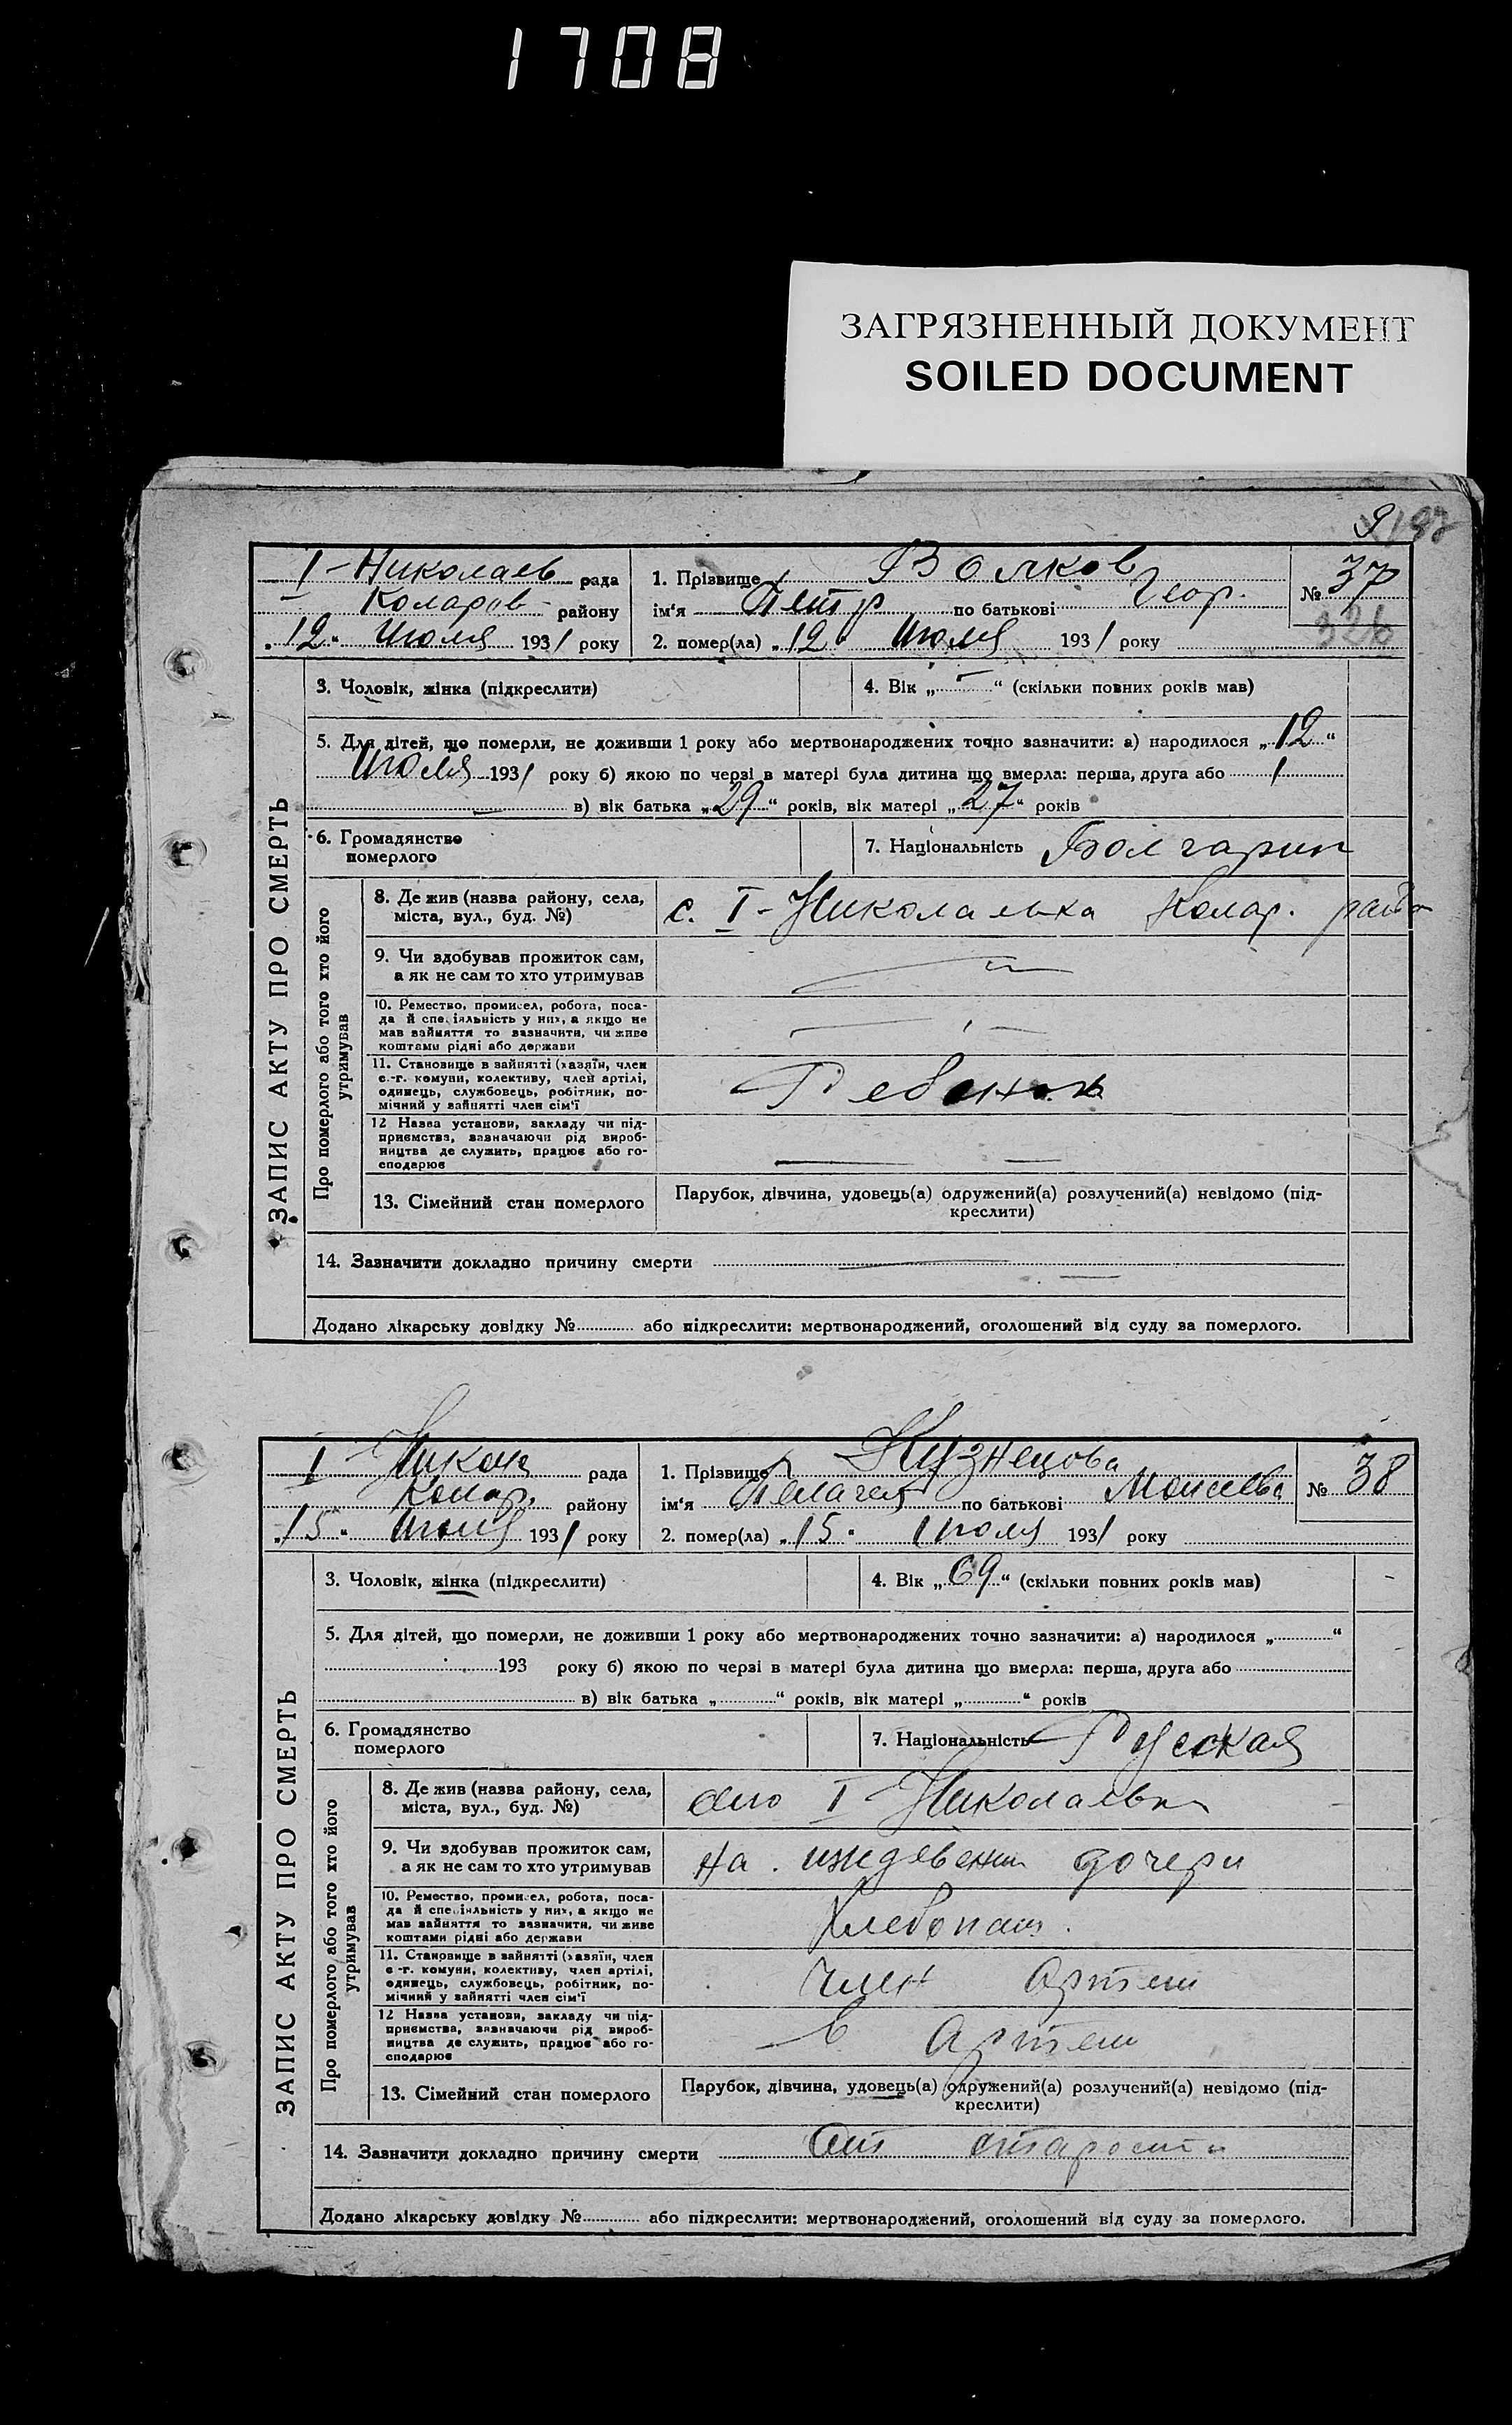 1708
ЗАГРЯЗНЕННЫЙ ДОКУМЕНТ
SOILED DOCUMENT
9
I - Николаев рада
Коларов району
„12“ Июля 1931 року
1. Прізвище Волков
ім‘я Петр по батькові Геор.
2. помер(ла) „12“ Июля 1931 року
№ 37
326
ЗАПИС АКТУ ПРО СМЕРТЬ
3. Чоловік, жінка (підкреслити)
4. Вік „ - “ (скільки повних років мав)
5. Для дітей, що померли, не доживши 1 року або мертвонароджених точно зазначити: а) народилося „12“
Июля 1931 року б) якою по черзі в матері була дитина що вмерла: перша, друга або 1
— в) вік батька „29“ років, вік матері „27“ років
6. Громадянство
померлого
7. Національність Болгарин
Про померлого або того хто його
утримував
8. Де жив (назва району, села,
міста, вул., буд. №)
с. I - Николаевка Колар. района
9. Чи здобував прожиток сам,
а як не сам то хто утримував
10. Ремество, промисел, робота, поса-
да й спеціяльність у них, а якщо не
мав зайняття то зазначити, чи живе
коштами рідні або держави
11. Становище в зайнятті (хазяїн, член
с.-г. комуни, колективу, член артілі,
одинець, службовець, робітник, по-
мічний у зайнятті член сім‘ї
Ребенок
12 Назва установи, закладу чи під-
приємства, зазначаючи рід вироб-
ництва де служить, працює або го-
сподарює
13. Сімейний стан померлого
Парубок, дівчина, удовець(а) одружений(а) розлучений(а) невідомо (під-
креслити)
14. Зазначити докладно причину смерти
Додано лікарську довідку № або підкреслити: мертвонароджений, оголошений від суду за померлого.
I Никол рада
Колар. району
„15“ Июля 1931 року
1. Прізвище Кузнецова
ім‘я Пелагея по батькові Моисеева
2. помер(ла) „15“ Июля 1931 року
№ 38
ЗАПИС АКТУ ПРО СМЕРТЬ
3. Чоловік, жінка (підкреслити)
4. Вік „69“ (скільки повних років мав)
5. Для дітей, що померли, не доживши 1 року або мертвонароджених точно зазначити: а) народилося „ “
193 року б) якою по черзі в матері була дитина що вмерла: перша, друга або
в) вік батька „ “ років, вік матері „ “ років
6. Громадянство
померлого
7. Національність Руская
Про померлого або того хто його
утримував
8. Де жив (назва району, села,
міста, вул., буд. №)
село I - Николаевка
9. Чи здобував прожиток сам,
а як не сам то хто утримував
на иждевении дочери
10. Ремество, промисел, робота, поса-
да й спеціяльність у них, а якщо не
мав зайняття то зазначити, чи живе
коштами рідні або держави
Хлебопаш.
11. Становище в зайнятті (хазяїн, член
с.-г. комуни, колективу, член артілі,
одинець, службовець, робітник, по-
мічний у зайнятті член сім‘ї
член Артели
12 Назва установи, закладу чи під-
приємства, зазначаючи рід вироб-
ництва де служить, працює або го-
сподарює
в Артели
13. Сімейний стан померлого
Парубок, дівчина, удовець(а) одружений(а) розлучений(а) невідомо (під-
креслити)
14. Зазначити докладно причину смерти От старости
Додано лікарську довідку № або підкреслити: мертвонароджений, оголошений від суду за померлого.